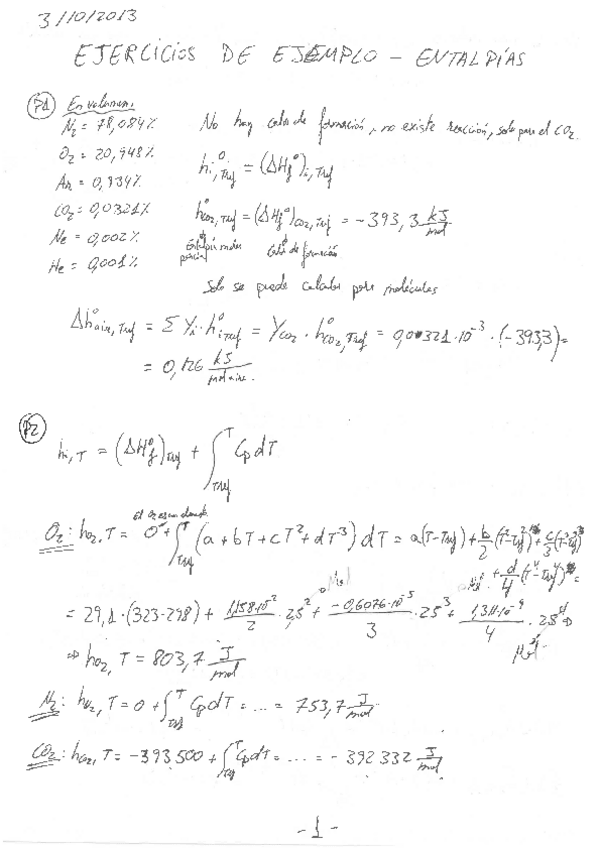 3/10/2013
EJERCICIOS DE EJEMPLO - ENTALPÍAS
P1 En volumen:
N₂ = 78,084%
O₂ = 20,948%
Ar = 0,934%
CO₂ = 0,0321%
Ne = 0,002%
He = 0,001%
No hay calor de formación, no existe reacción, solo para el CO₂.
h°i,Tref = (ΔHf°)i,Tref
h°CO₂,Tref = (ΔHf°)CO₂,Tref = -393,3 kJ/mol
Entalpía molar parcial
Calor de formación
Solo se puede calcular para moléculas
Δh°aire,Tref = Σ Yi · h°i,Tref = YCO₂ · h°CO₂,Tref = 0,00321·10⁻³ · (-393,3) =
= 0,126 kJ/mol aire.
P2
hi,T = (ΔHf°)Tref + ∫Tref^T Cp dT
O₂: hO₂,T = 0 + ∫Tref^T (a + bT + cT² + dT³) dT = a(T-Tref) + b/2 (T²-Tref²) + c/3 (T³-Tref³)
+ d/4 (T⁴-Tref⁴) =
= 29,1 · (323-298) + 1,158·10⁻²/2 · 25² + -0,6076·10⁻⁵/3 · 25³ + 1,311·10⁻⁹/4 · 25⁴ ⇒
⇒ hO₂,T = 803,7 J/mol
N₂: hN₂,T = 0 + ∫Tref^T Cp dT = ... = 753,7 J/mol
CO₂: hCO₂,T = -393.500 + ∫Tref^T Cp dT = ... = -392 332 J/mol
-1-